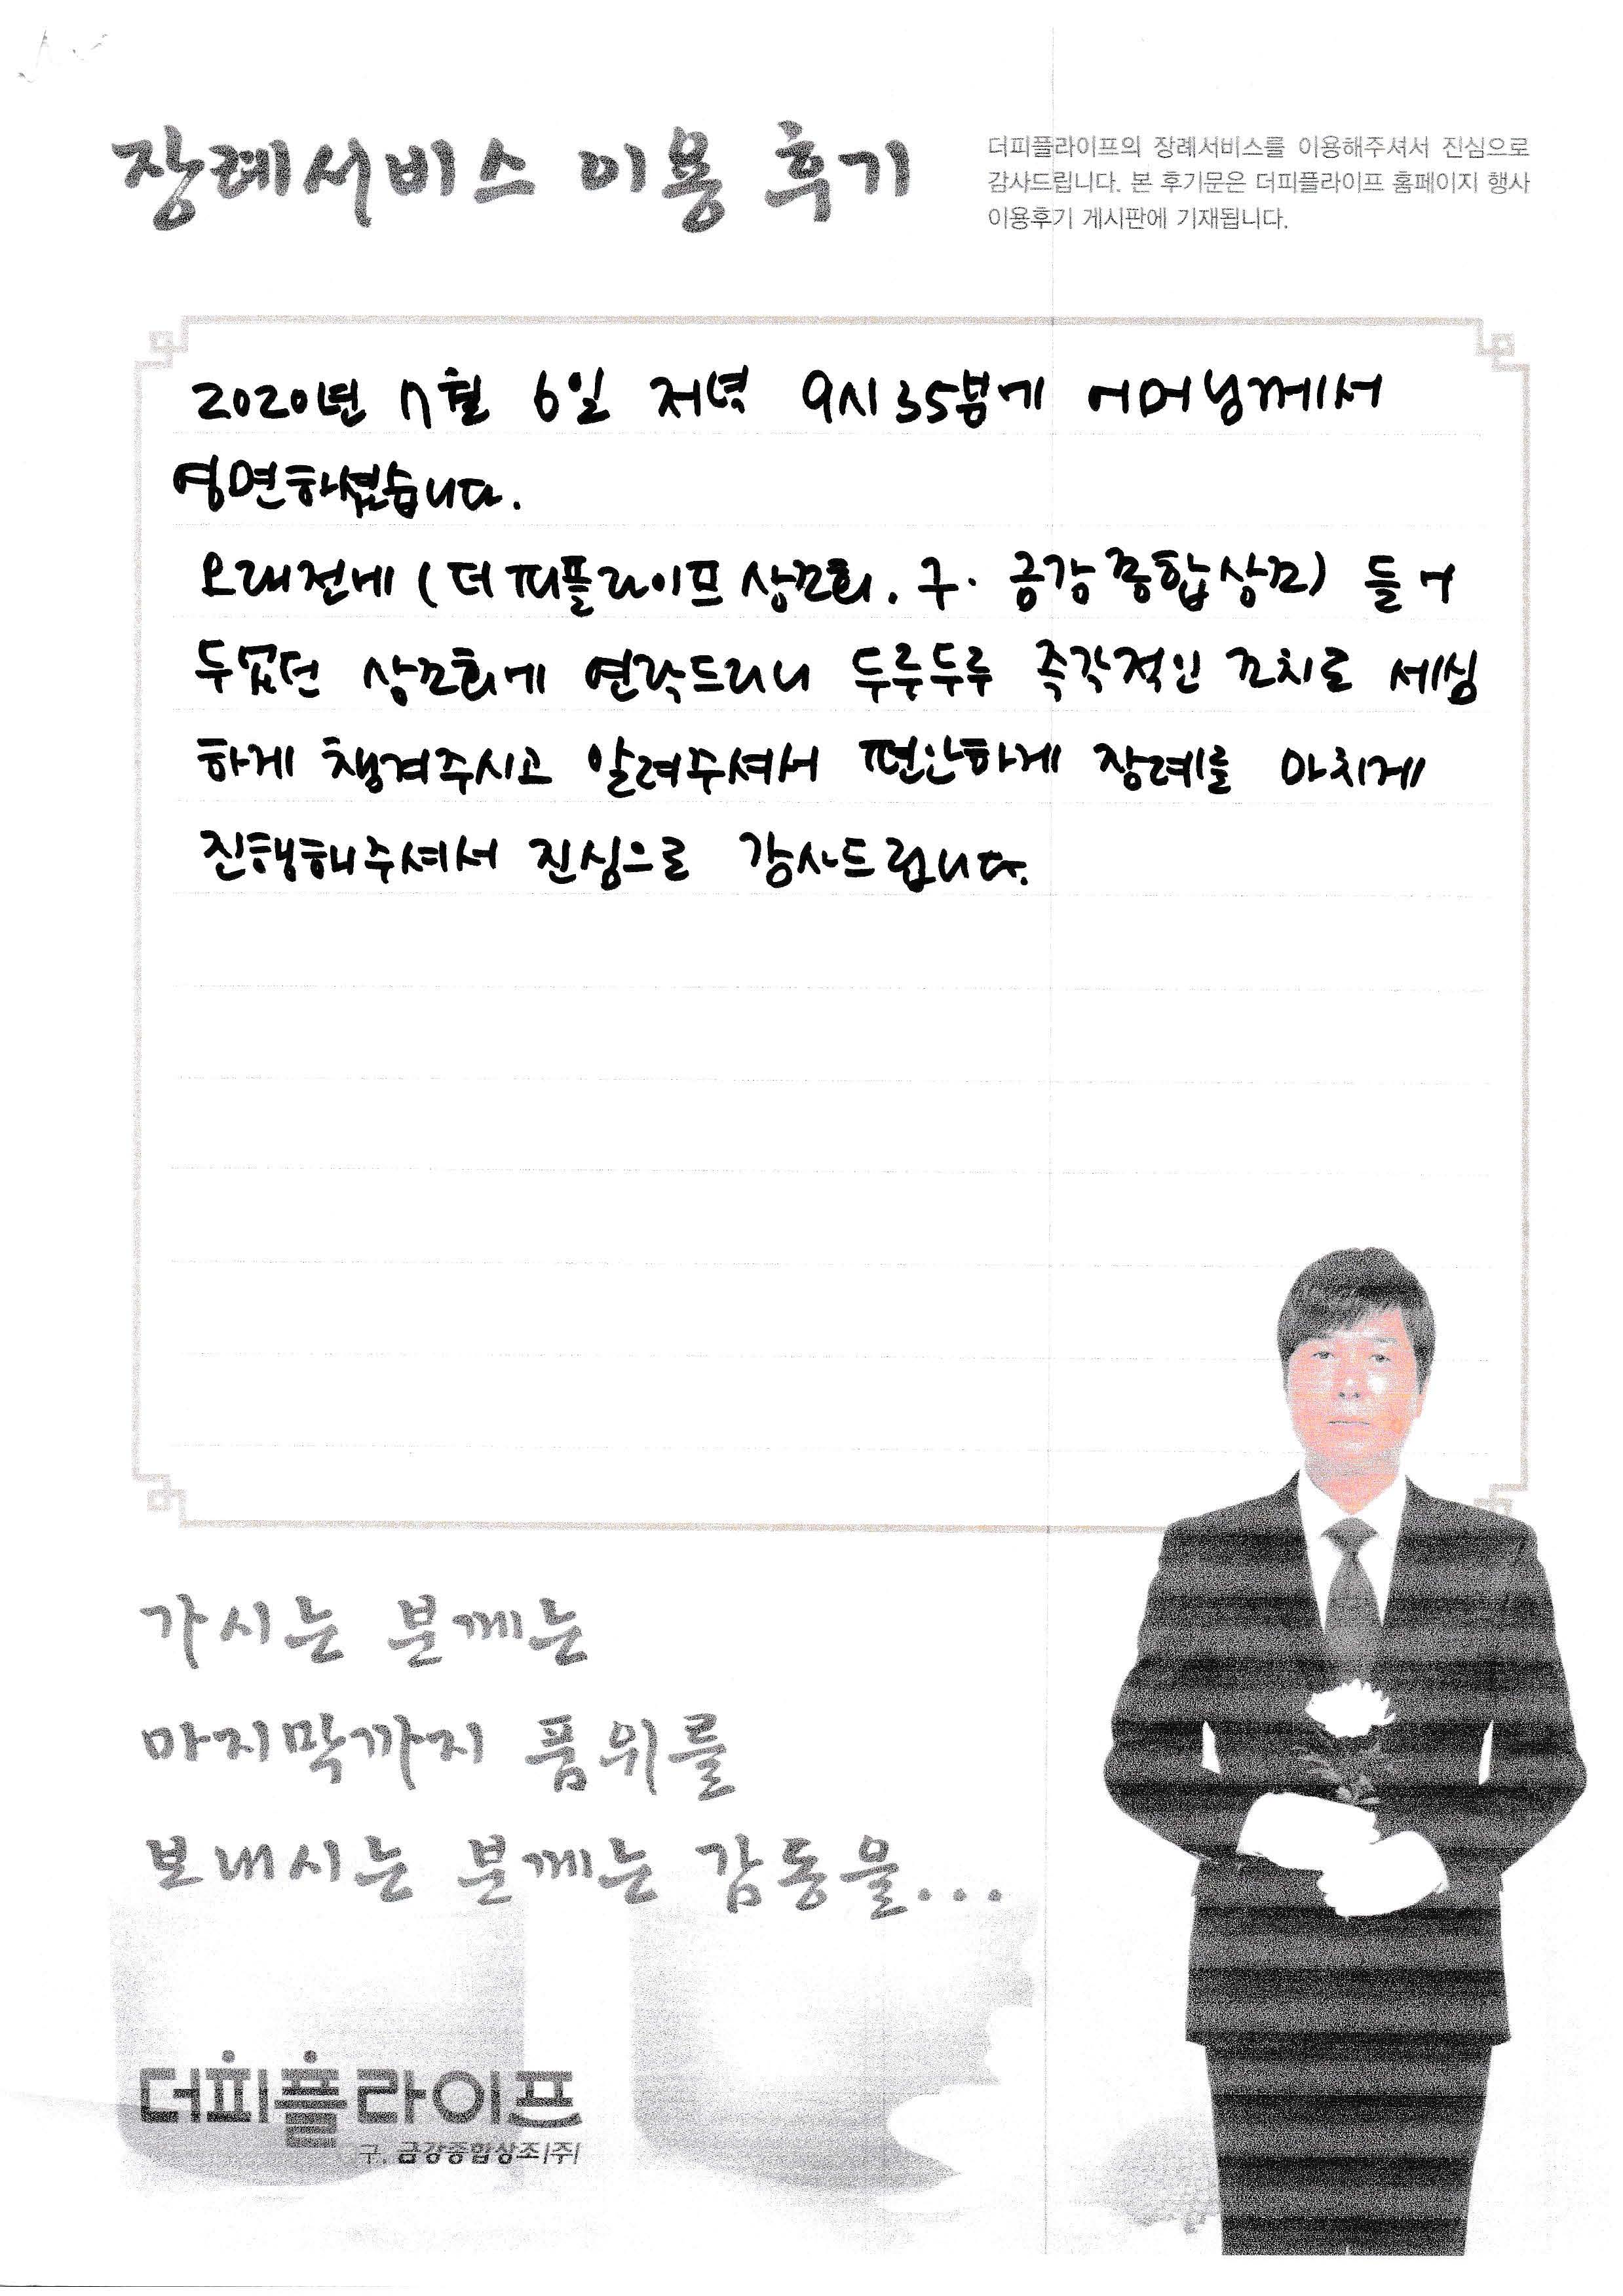 장례서비스 이용 후기
더피플라이프의 장례서비스를 이용해주셔서 진심으로
감사드립니다. 본 후기문은 더피플라이프 홈페이지 행사
이용후기 게시판에 기재됩니다.
2020년 7월 6일 저녁 9시35분에 어머님께서
영면하셨습니다.
오래전에 (더피플라이프 상조회. 구. 금강종합상조) 들어
두었던 상조회에 연락드리니 두루두루 즉각적인 조치로 세심
하게 챙겨주시고 알려주셔서 편안하게 장례를 마치게
진행해주셔서 진심으로 감사드립니다.
가시는 분께는
마지막까지 품위를
보내시는 분께는 감동을...
더피플라이프
구. 금강종합상조(주)